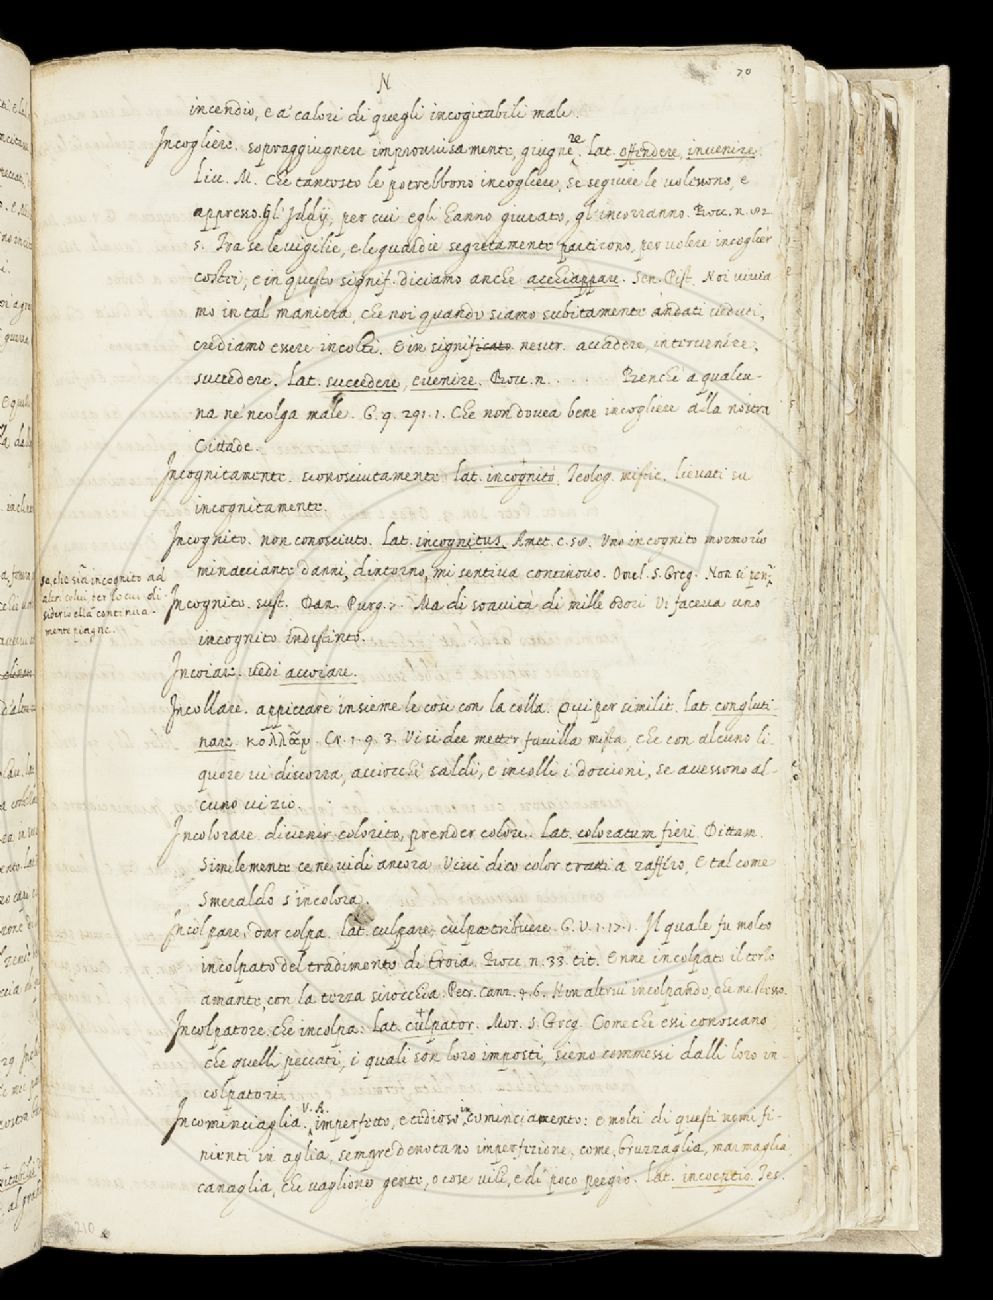 70
N
incendio, e a' calori di quegli incogitabili mali.
Incogliere. sopraggiugnere improvvisamente, giugnere. Lat. offendere, invenire.
Liv. M. Che tantosto le potrebbono incogliere, se seguire le volessono, e
appresso. Gl' Iddij, per cui egli hanno giurato, gl' incorranno. Bocc. n.
5. Tra se le vigilie, e le guardie segretamente partirono, per volere incoglier
costui; e in questo signif. diciamo anche acchiappare. Sen. Pist. Noi vivia
mo in tal maniera, che noi quando siamo subitamente andati veduti,
crediamo essere incolti. E in significato neutr. accadere, intervenire,
succedere. Lat. succedere, evenire. Bocc. n. . . . . Benchè a qualcu-
na ne 'ncolga male. G. 9. 291. 1. Che non dovea bene incogliere alla nostra
Cittade.
Incognitamente. sconosciutamente. Lat. incognitò. Teolog. mistic. Lievati su
incognitamente.
Incognito. non conosciuto. Lat. incognitus. Amet. c. 58. Uno incognito mormorio
minacciante danni, dintorno, mi sentiva continovo. Omel. S. Greg. Non si pen-
se, che sia incognito ad
altri colui, per lo cui di-
siderio ella continua-
mente piagne.
Incognito. sust. Dan. Purg. 7. Ma di soavità di mille odori Vi faceva uno
incognito indistinto.
Incoiare. vedi accoiare.
Incollare. appiccare insieme le cose con la colla. Qui per similit. Lat. congluti
nare. κολλᾶν. Cr. 1. 9. 3. Vi si dee metter favilla mista, che con alcuno li-
quore vi discorra, acciocchè saldi, e incolli i doccioni, se avessono al-
cuno vizio.
Incolorare. divenir colorito, prender colore. Lat. coloratum fieri. Dittam.
Similemente ce ne vidi ancora Vivi dico color tratti a zaffiro, E tal come
Smeraldo s' incolora.
Incolpare. dar colpa. Lat. culpare, culpae tribuere. G. V. 1. 17. 1. Il quale fu molto
incolpato del tradimento di Troia. Bocc. n. 33. tit. Enne incolpato il terzo
amante, con la terza sirocchia. Petr. Canz. 4. 6. Non altrui incolpando, che me stesso.
Incolpatore. che incolpa. Lat. culpator. Mor. S. Greg. Come che essi conoscano
che quelli peccati, i quali son loro imposti, sieno commessi dalli loro in-
colpatori.
Incominciaglia. V. A. imperfetto, e tedioso incominciamento: e molti di questi nomi fi-
nienti in aglia, sempre denotano imperfezione, come, bruzzaglia, marmaglia,
canaglia, che vagliono gente, o cose vili, e di poco pregio. Lat. incoeptio. Tes.
210